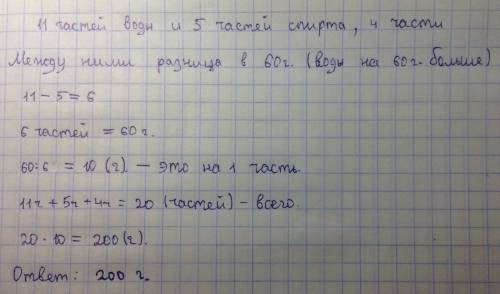 11 частей воды и 5 частей спирта, 4 части
Между ними разница в 60г. (воды на 60г. больше)
11 - 5 = 6
6 частей = 60 г.
60:6 = 10 (г) - это на 1 часть.
11ч + 5ч + 4ч = 20 (частей) - всего.
20 · 10 = 200 (г).
Ответ: 200 г.